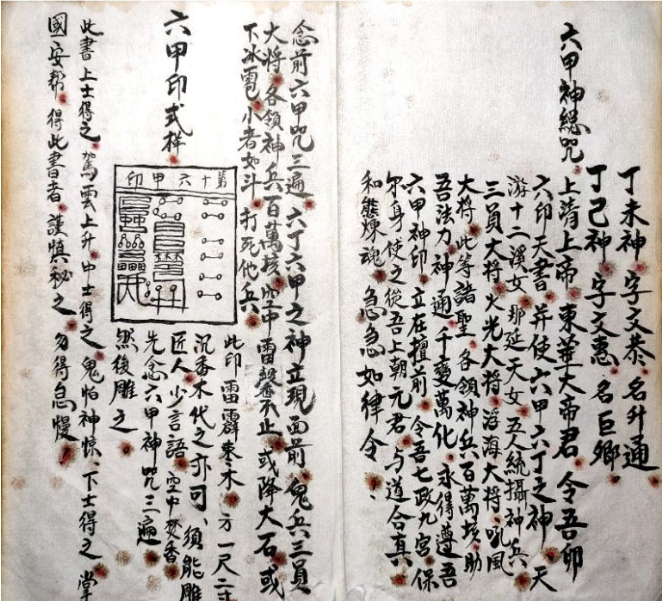 丁未神 字文恭 名升通
丁己神 字文惠 名巨卿
六甲神總咒
上清上帝 東華大帝君 令吾卯
六印天書 并使六甲六丁之神 天
游十二溪女 那延天女 五人統攝神兵
三員大將 火光大將 浮海大將 吼風
大將 此等諸聖 各領神兵百萬垓助
吾法力 神通 千變萬化 永得遵吾
六甲神印 立在擅前 令吾七政九宮 保
尔身使之從吾上朝元君 与道合真
和 煉魂 急急如律令
念前六甲咒三遍 六丁六甲之神立現面前 鬼兵三員
大將 各領神兵百萬垓 空中雷 不止 或降大石 或
下冰雹 小者如斗 打死他兵
六甲印式样
第十六甲印
此印雷霹棗木 方一尺二寸
沉香木代之亦可 須能雕
匠人少言語 空中焚香
先念六甲神咒三遍
然後雕之
此書上士得之 駕雲上升 中士得之 鬼怕神懷 下士得之 掌
國安幫 得此書者 謹慎秘之 勿得怠慢